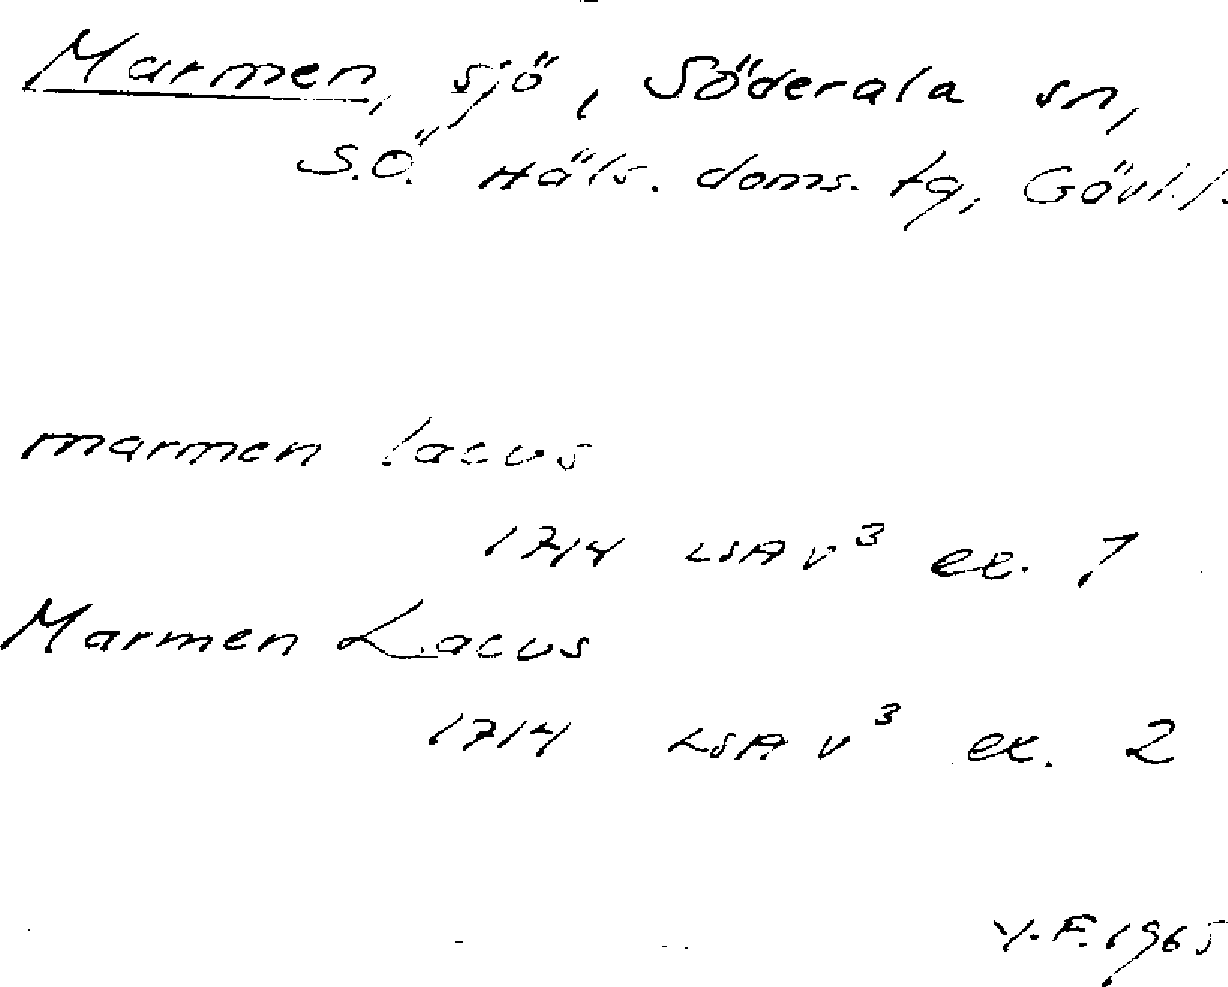 Marmen, sjö, Söderala sn,
S.Ö. Häls. doms. tg, Gävl.l.
marmen lacus
1714 LSA V³ ex. 1
Marmen Lacus
1714 LSA V³ ex. 2
Y.F. 1965